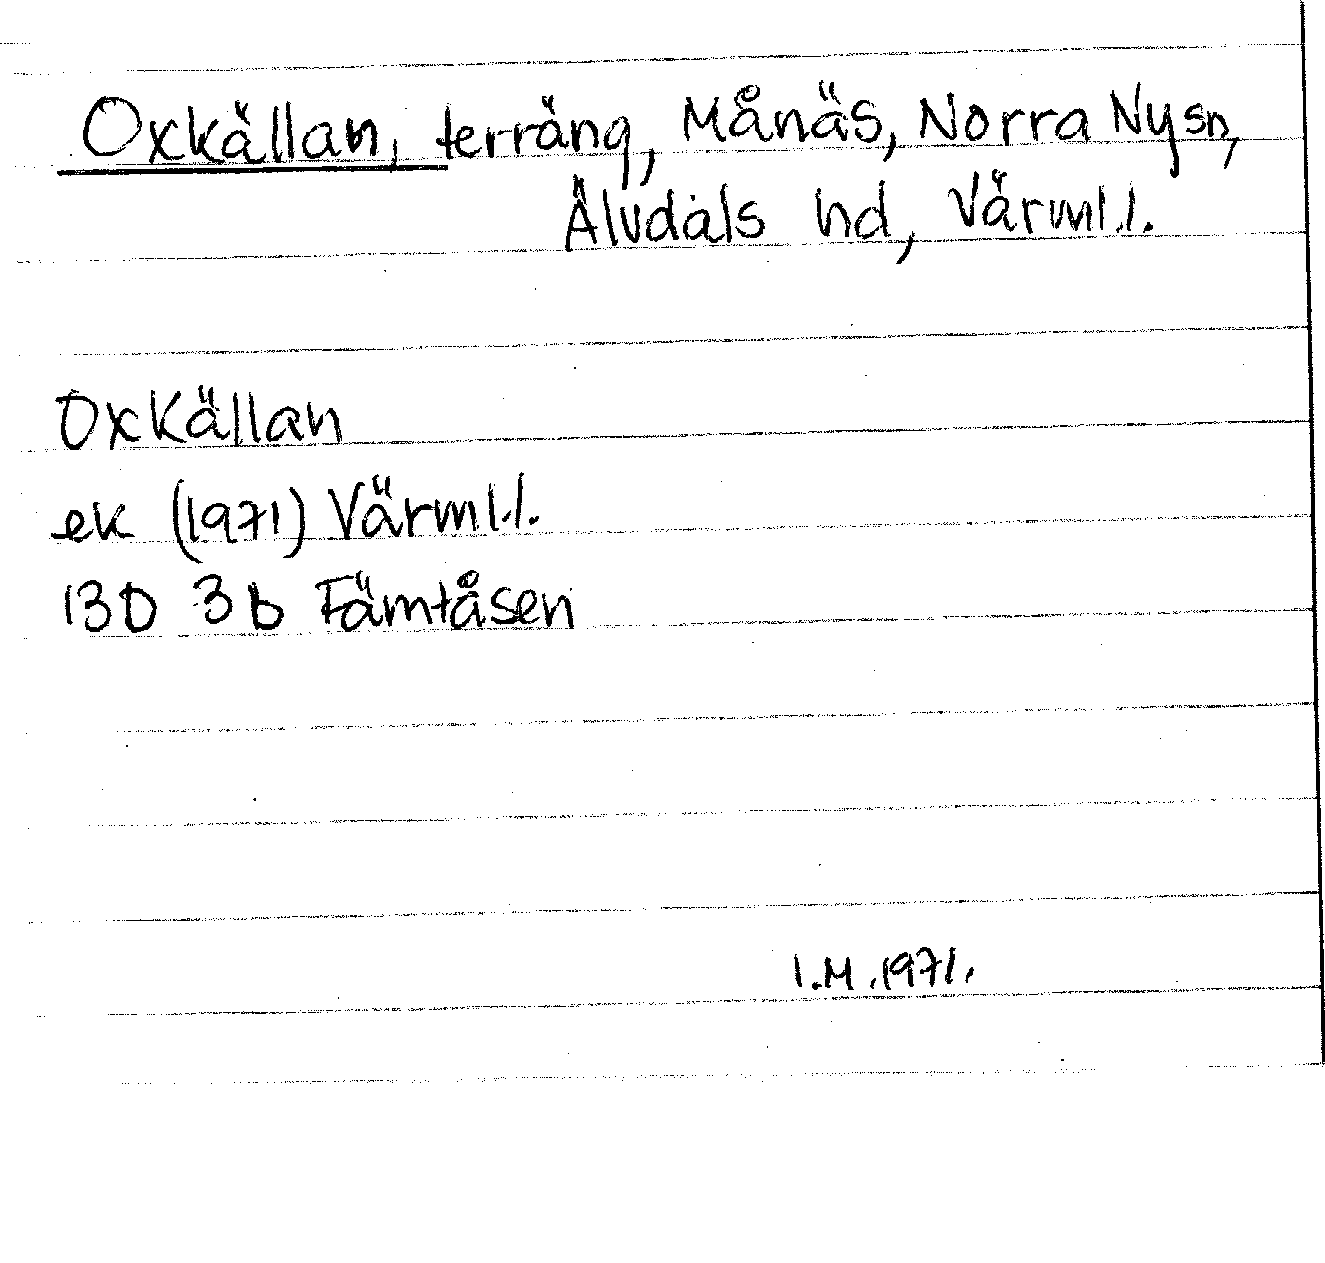 Oxkällan, terräng, Månäs, Norra Nysn,
Älvdals hd, Värml.l.
Oxkällan
ek (1971) Värml.l.
13D 3b Fämtåsen
I.M. 1971.